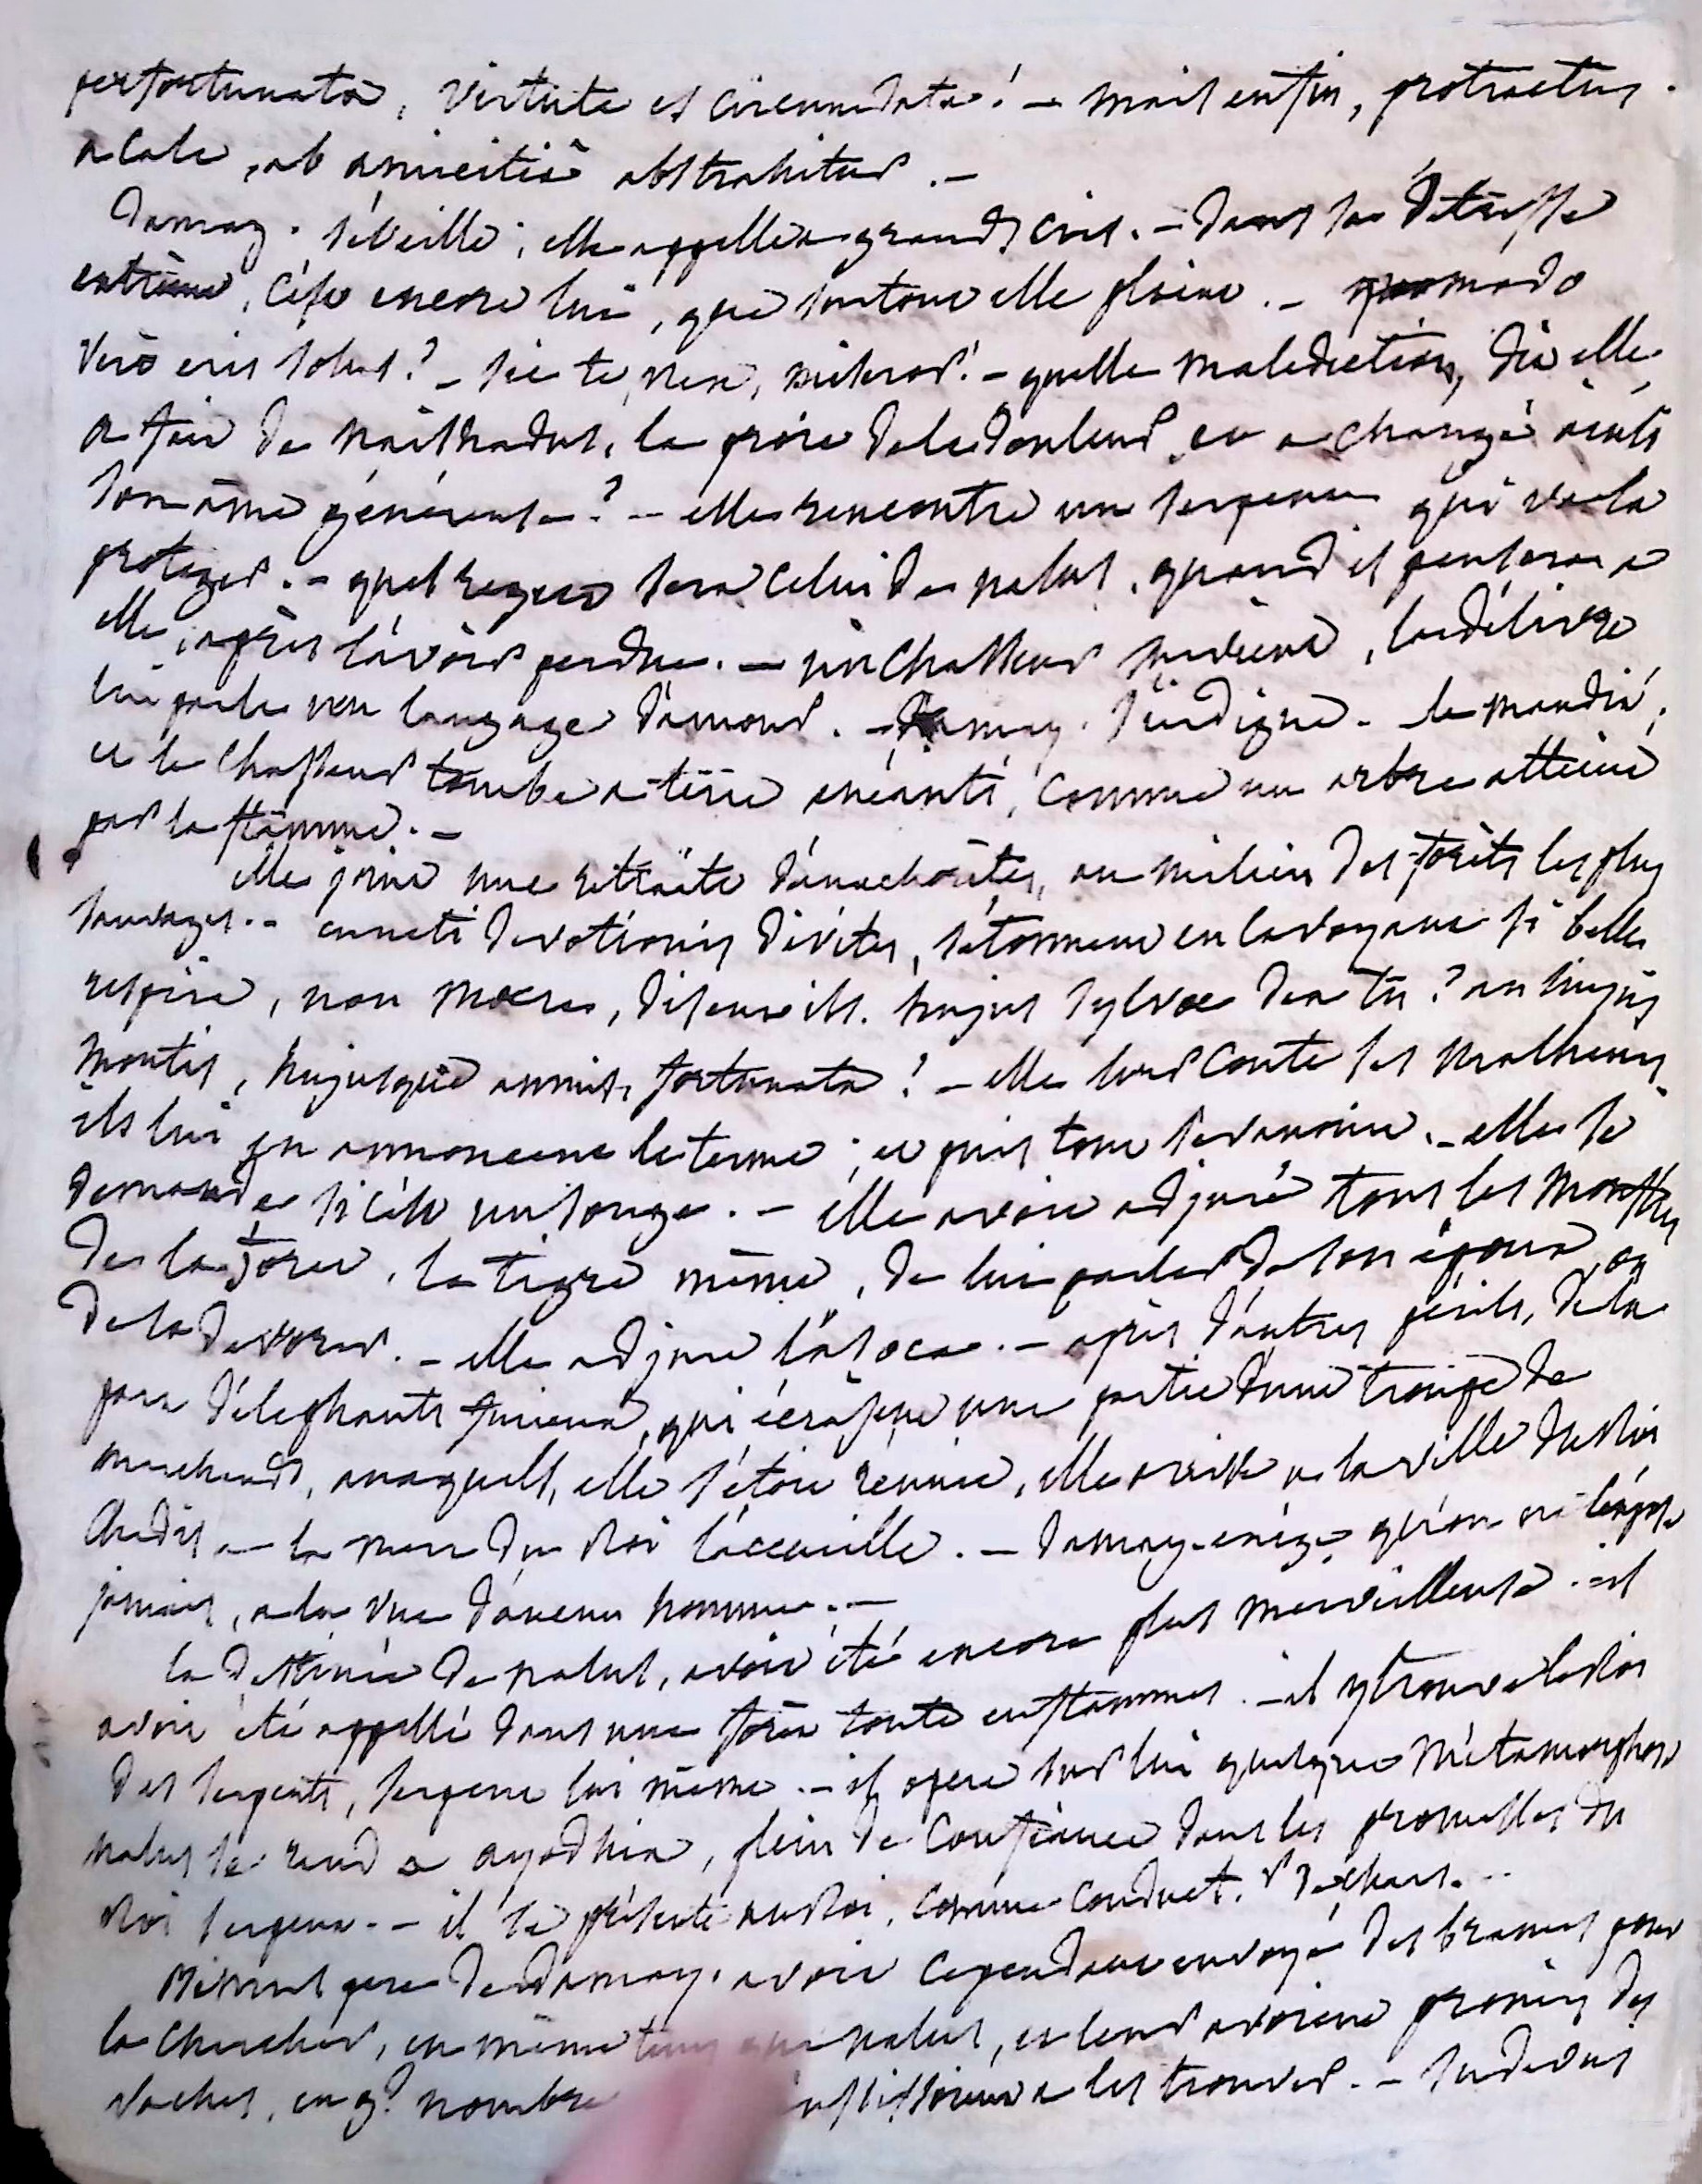 perfortunata, virtute et circumdata! – mais enfin, protractus
a Cale, ab amicitiâ abstrahitur. –
Damay. s'éveille; elle appelle a grands cris. – Dans sa détresse
extrême, c'est encore lui, que surtout elle plaint. – quomodo
vero eris solus? – sic te, rex, miseror! – quelle malediction, dit elle,
a fait de Naishadus, la proie de la douleur, et a changé ainsi
son âme généreuse? – elle rencontre un serpent qui va la
proteger. – quel regret sera celui de nalus, quand il pensera a
elle, après l'avoir perdue. – un chasseur survient, la délivre
lui parle un langage d'amour. – Damay. s'indigne – le maudit,
et le chasseur tombe a terre anéanti, comme un arbre atteint
par la flamme. –
elle joint une retraite d'anachorètes, au milieu des forêts les plus
sauvages. – cuncti devotionis divites, s'étonnent en la voyant si belle
respire, non moere, disent ils. hujus sylvae dea tu? an hujus
montis, hujusque amnis, fortunata! – elle leur conte ses malheurs,
ils lui en annoncent le terme; et puis tout s'evanouit. – elle se
demande si c'est un songe. – elle avoit adjuré tous les monstres
de la forêt, le tigre même, de lui parler de son époux, ou
de la devorer. – elle adjure l'asoca. – après d'autres périls, de la
part d'élephants furieux, qui écrasent une partie d'une troupe de
marchands, auxquels, elle s'étoit réunie, elle arrive a la ville du Roi
Chedis – la mere du Roi l'accueille. – Damay. exige qu'on ne l'expose
jamais, a la vue d'aucun homme. –
la destinée de nalus, avoit été encore plus merveilleuse. – il
avoit été appellé dans une forêt toute enflammée. – il y trouve le Roi
des serpents, serpent lui même. – il opere sur lui quelque métamorphose
nalus se rend a ayodhia, plein de confiance dans les promesses du
Roi serpent. – il se présente au Roi, comme conduct.r de chars. –
pere de Damay. avoit cependant envoyé des brames pour
la chercher, en même tems que nalus, et leur avoient promis des
vaches, en gd nombre a les trouver. – Sudevus